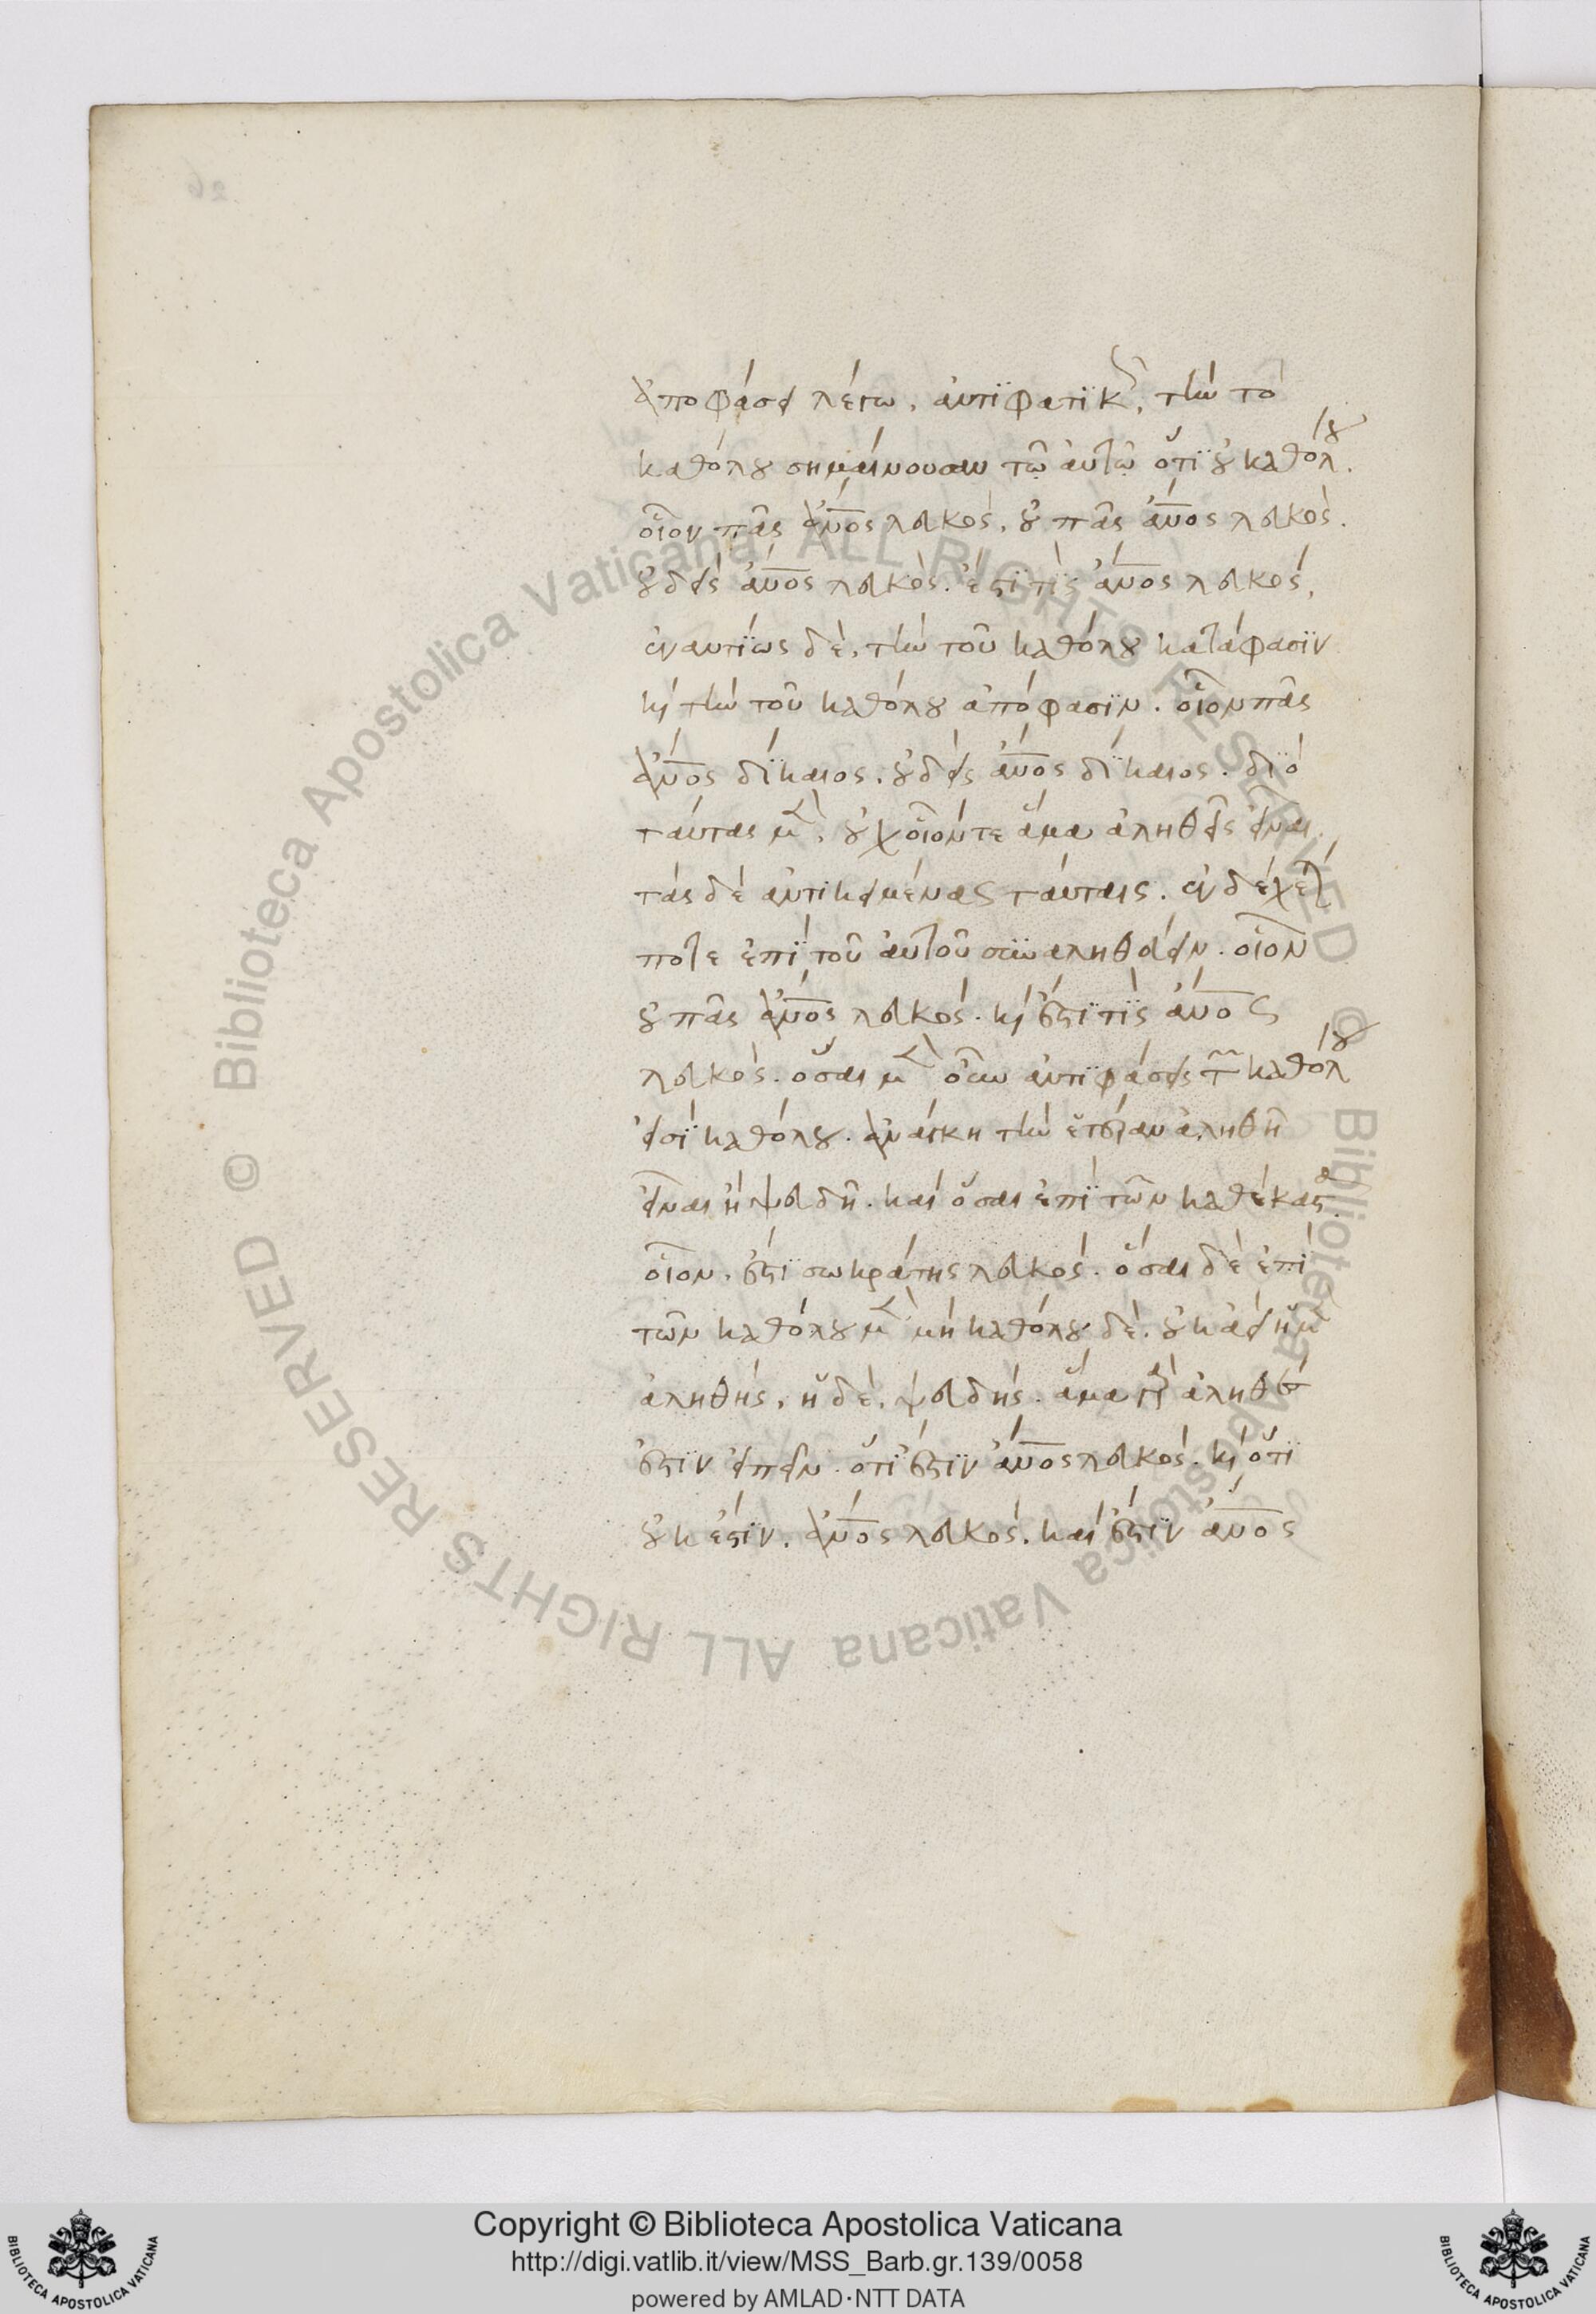 ἀποφάσει λέγω. ἀντιφατικῶς, τὴν τὸ
καθόλου σημαίνουσαν τῶ αὐτῶ ὅτι οὐ καθόλου.
οἷον πᾶς ἄνος λευκὸς. οὐ πᾶς ἄνος λευκὸς.
οὐδεὶς ἄνος λευκὸς. ἔστι τὶς ἄνος λευκός,
ἐναντίως δὲ, τὴν τοῦ καθόλου κατάφασιν
καὶ τὴν τοῦ καθόλου ἀπόφασιν. οἷον πᾶς
ἄνος δίκαιος. οὐδεὶς ἄνος δίκαιος. διὸ
ταύτας μὲν, οὐχοἷόντε ἅμα ἀληθεῖς εἶναι.
τὰς δὲ ἀντικειμένας ταύταις. ἐνδέχεται
ποτε ἐπὶ τοῦ αὐτοῦ συναληθεύειν. οἷον
οὐ πᾶς ἄνος λευκός. καὶ ἔστι τὶς ἄνος
λευκὸς. ὅσαι μὲν οὖν ἀντιφάσεις τῶν καθόλου
εἰσὶ καθόλου. ἀνάγκη τὴν ἑτέραν ἀληθῆ
εἶναι ἢ ψευδῆ. καὶ ὅσαι ἐπὶ τῶν καθέκαστα.
οἷον. ἔστι σωκράτης λευκός. ὅσαι δὲ ἐπὶ
τῶν καθόλου μὲν μὴ καθόλου δὲ. οὐκ ἀεὶ ἡ μὲν
ἀληθής, ἡ δὲ. ψευδής. ἅμα γὰρ ἀληθές
ἐστιν εἰπεῖν. ὅτι ἔστιν ἄνος λευκός. καὶ ὅτι
οὐκ ἔστιν. ἄνος λευκός. καὶ ἔστιν ἄνος
Copyright © Biblioteca Apostolica Vaticana
http://digi.vatlib.it/view/MSS_Barb.gr.139/0058
powered by AMLAD·NTT DATA
BIBLIOTECA APOSTOLICA VATICANA
BIBLIOTECA APOSTOLICA VATICANA
© Biblioteca Apostolica Vaticana ALL RIGHTS RESERVED
© Biblioteca Apostolica Vaticana ALL RIGHTS RESERVED